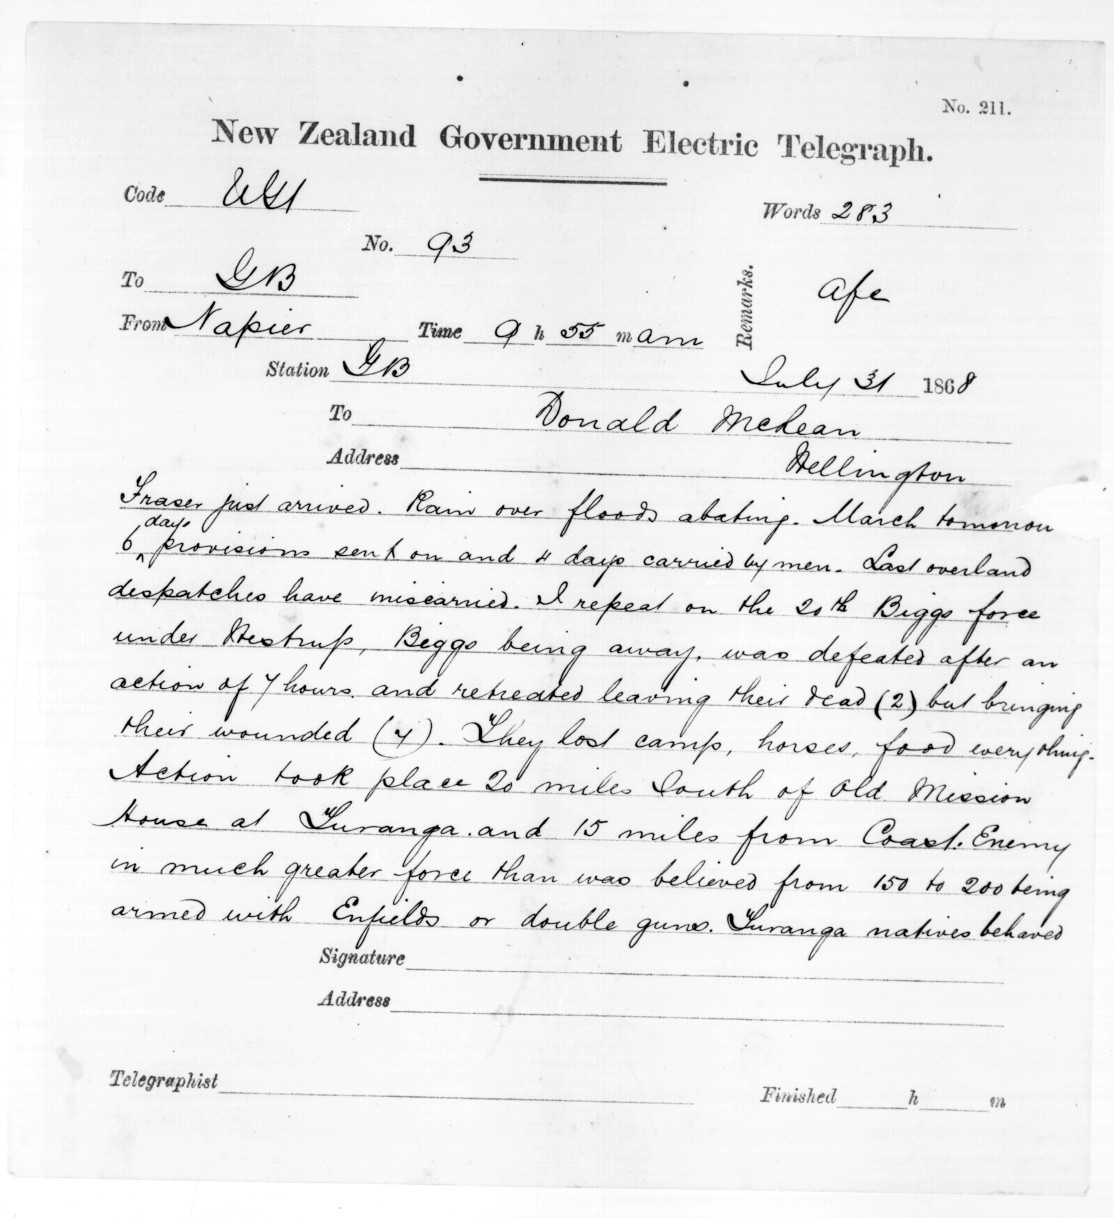 No. 211.
New Zealand Government Electric Telegraph.
Code
Words 283
No. 93
To GB
Remarks. Afe
From Napier Time 9 h 55 m am
Station GB July 31 1868
To Donald McLean
Address Wellington
Fraser just arrived. Rain over floods abating. March tomorrow
6 days provisions sent on and 4 days carried by men. Last overland
despatches have miscarried. I repeat on the 20th Biggs force
under Westrup, Biggs being away, was defeated after an
action of 7 hours and retreated leaving their dead (2) but bringing
their wounded (4). They lost camp, horses, food everything.
Action took place 20 miles South of Old Mission
House at Turanga. and 15 miles from Coast. Enemy
in much greater force than was believed from 150 to 200 being
armed with Enfields or double guns. Turanga natives behaved
Signature
Address
Telegraphist Finished h m